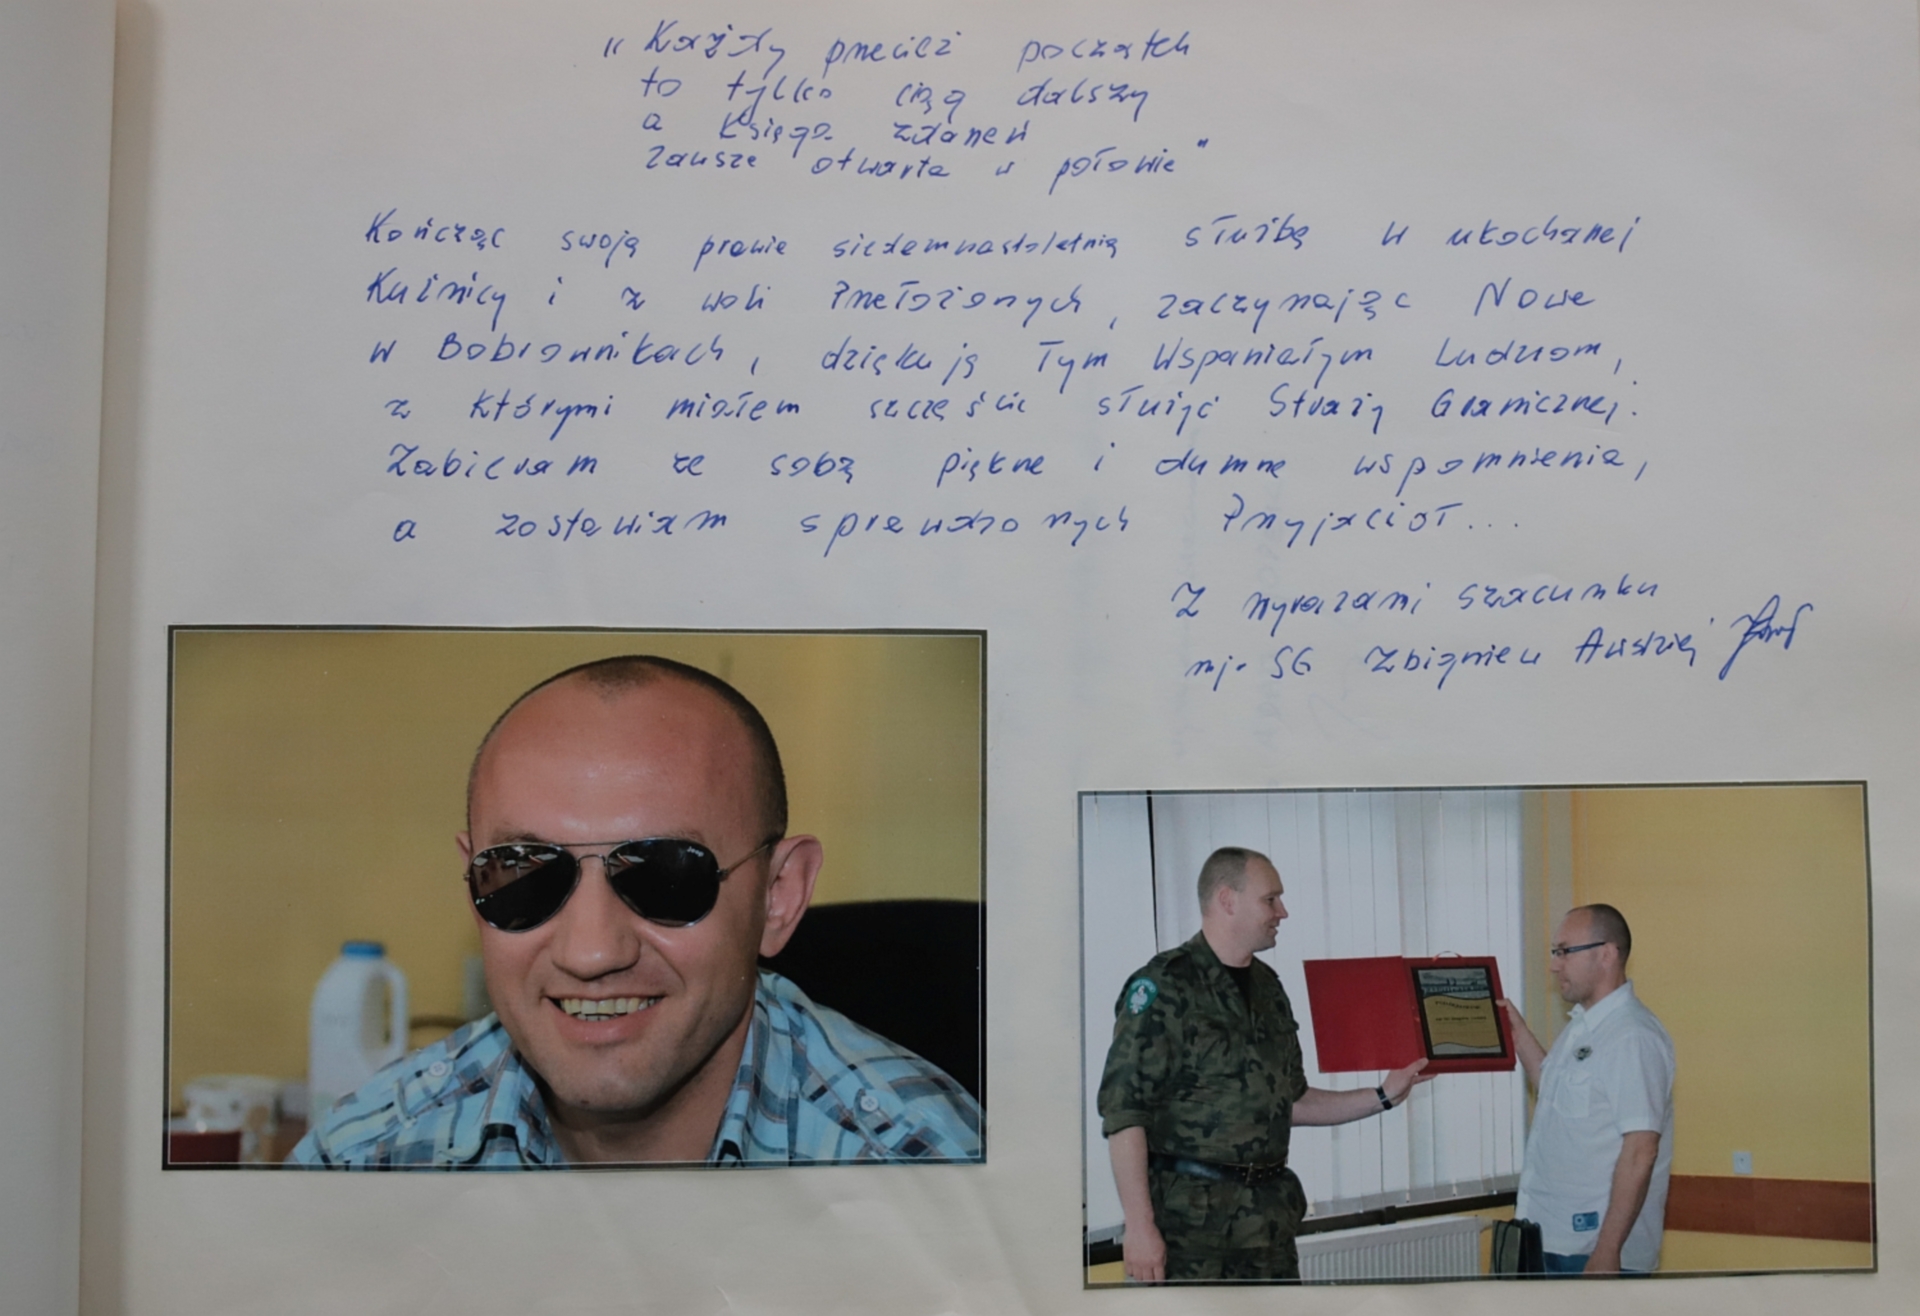 „Każdy przecież początek
to tylko ciąg dalszy
a księga zdarzeń
zawsze otwarta w połowie"
Kończąc swoją prawie siedemnastoletnią służbę w ukochanej
Kuźnicy i z woli Przełożonych, zaczynając Nowe
w Bobrownikach, dziękuję Tym Wspaniałym Ludziom,
z którymi miałem szczęście służyć Straży Granicznej.
Zabieram ze sobą piękne i dumne wspomnienia,
a zostawiam sprawdzonych Przyjaciół...
Z wyrazami szacunku
mjr SG Zbigniew